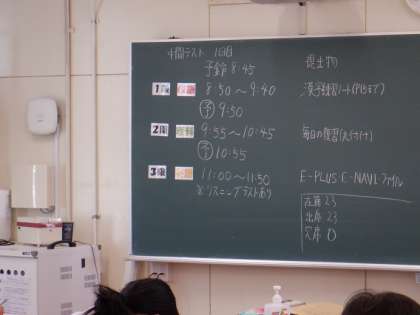 中間テスト 1日目
予鈴 8:45
提出物
1限 国語 8:50〜9:40 漢字練習ノート(P15まで)
予 9:50
2限 理科 9:55〜10:45 毎日の復習
予 10:55
3限 英語 11:00〜11:50 E-PLUS E-NAVI ファイル
※リスニングテストあり
在籍 23
出席 23
欠席 0